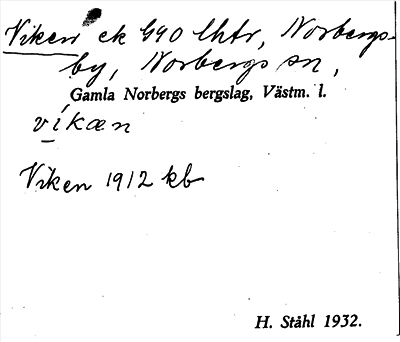 Viken ek G90 lhtr, Norbergs-
by, Norbergs sn,
Gamla Norbergs bergslag, Västm. l.
víkæn
Viken 1912 kb
H. Ståhl 1932.